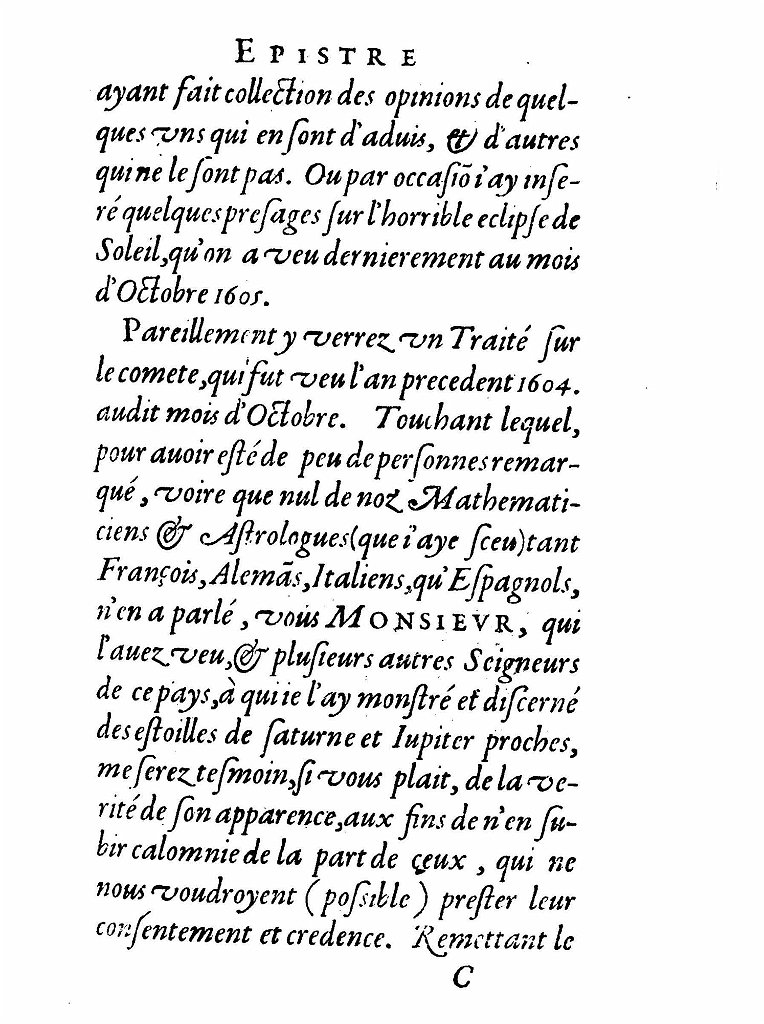 EPISTRE
ayant fait collection des opinions de quel-
ques vns qui en ſont d'aduis, & d'autres
qui ne le ſont pas. Ou par occaſiõ i'ay inſe-
ré quelques preſages ſur l'horrible eclipſe de
Soleil, qu'on a veu dernierement au mois
d'Octobre 1605.
Pareillement y verrez vn Traité ſur
le comete, qui fut veu l'an precedent 1604.
audit mois d'Octobre. Touchant lequel,
pour auoir eſté de peu de perſonnes remar-
qué, voire que nul de noz Mathemati-
ciens & Aſtrologues (que i'aye ſceu) tant
François, Alemãs, Italiens, qu'Eſpagnols,
n'en a parlé, vous MONSIEVR, qui
l'auez veu, & pluſieurs autres Seigneurs
de ce pays, à qui ie l'ay monſtré et diſcerné
des eſtoilles de ſaturne et Iupiter proches,
me ſerez teſmoin, ſi vous plait, de la ve-
rité de ſon apparence, aux fins de n'en ſu-
bir calomnie de la part de çeux, qui ne
nous voudroyent (poſsible) preſter leur
conſentement et credence. Remettant le
C